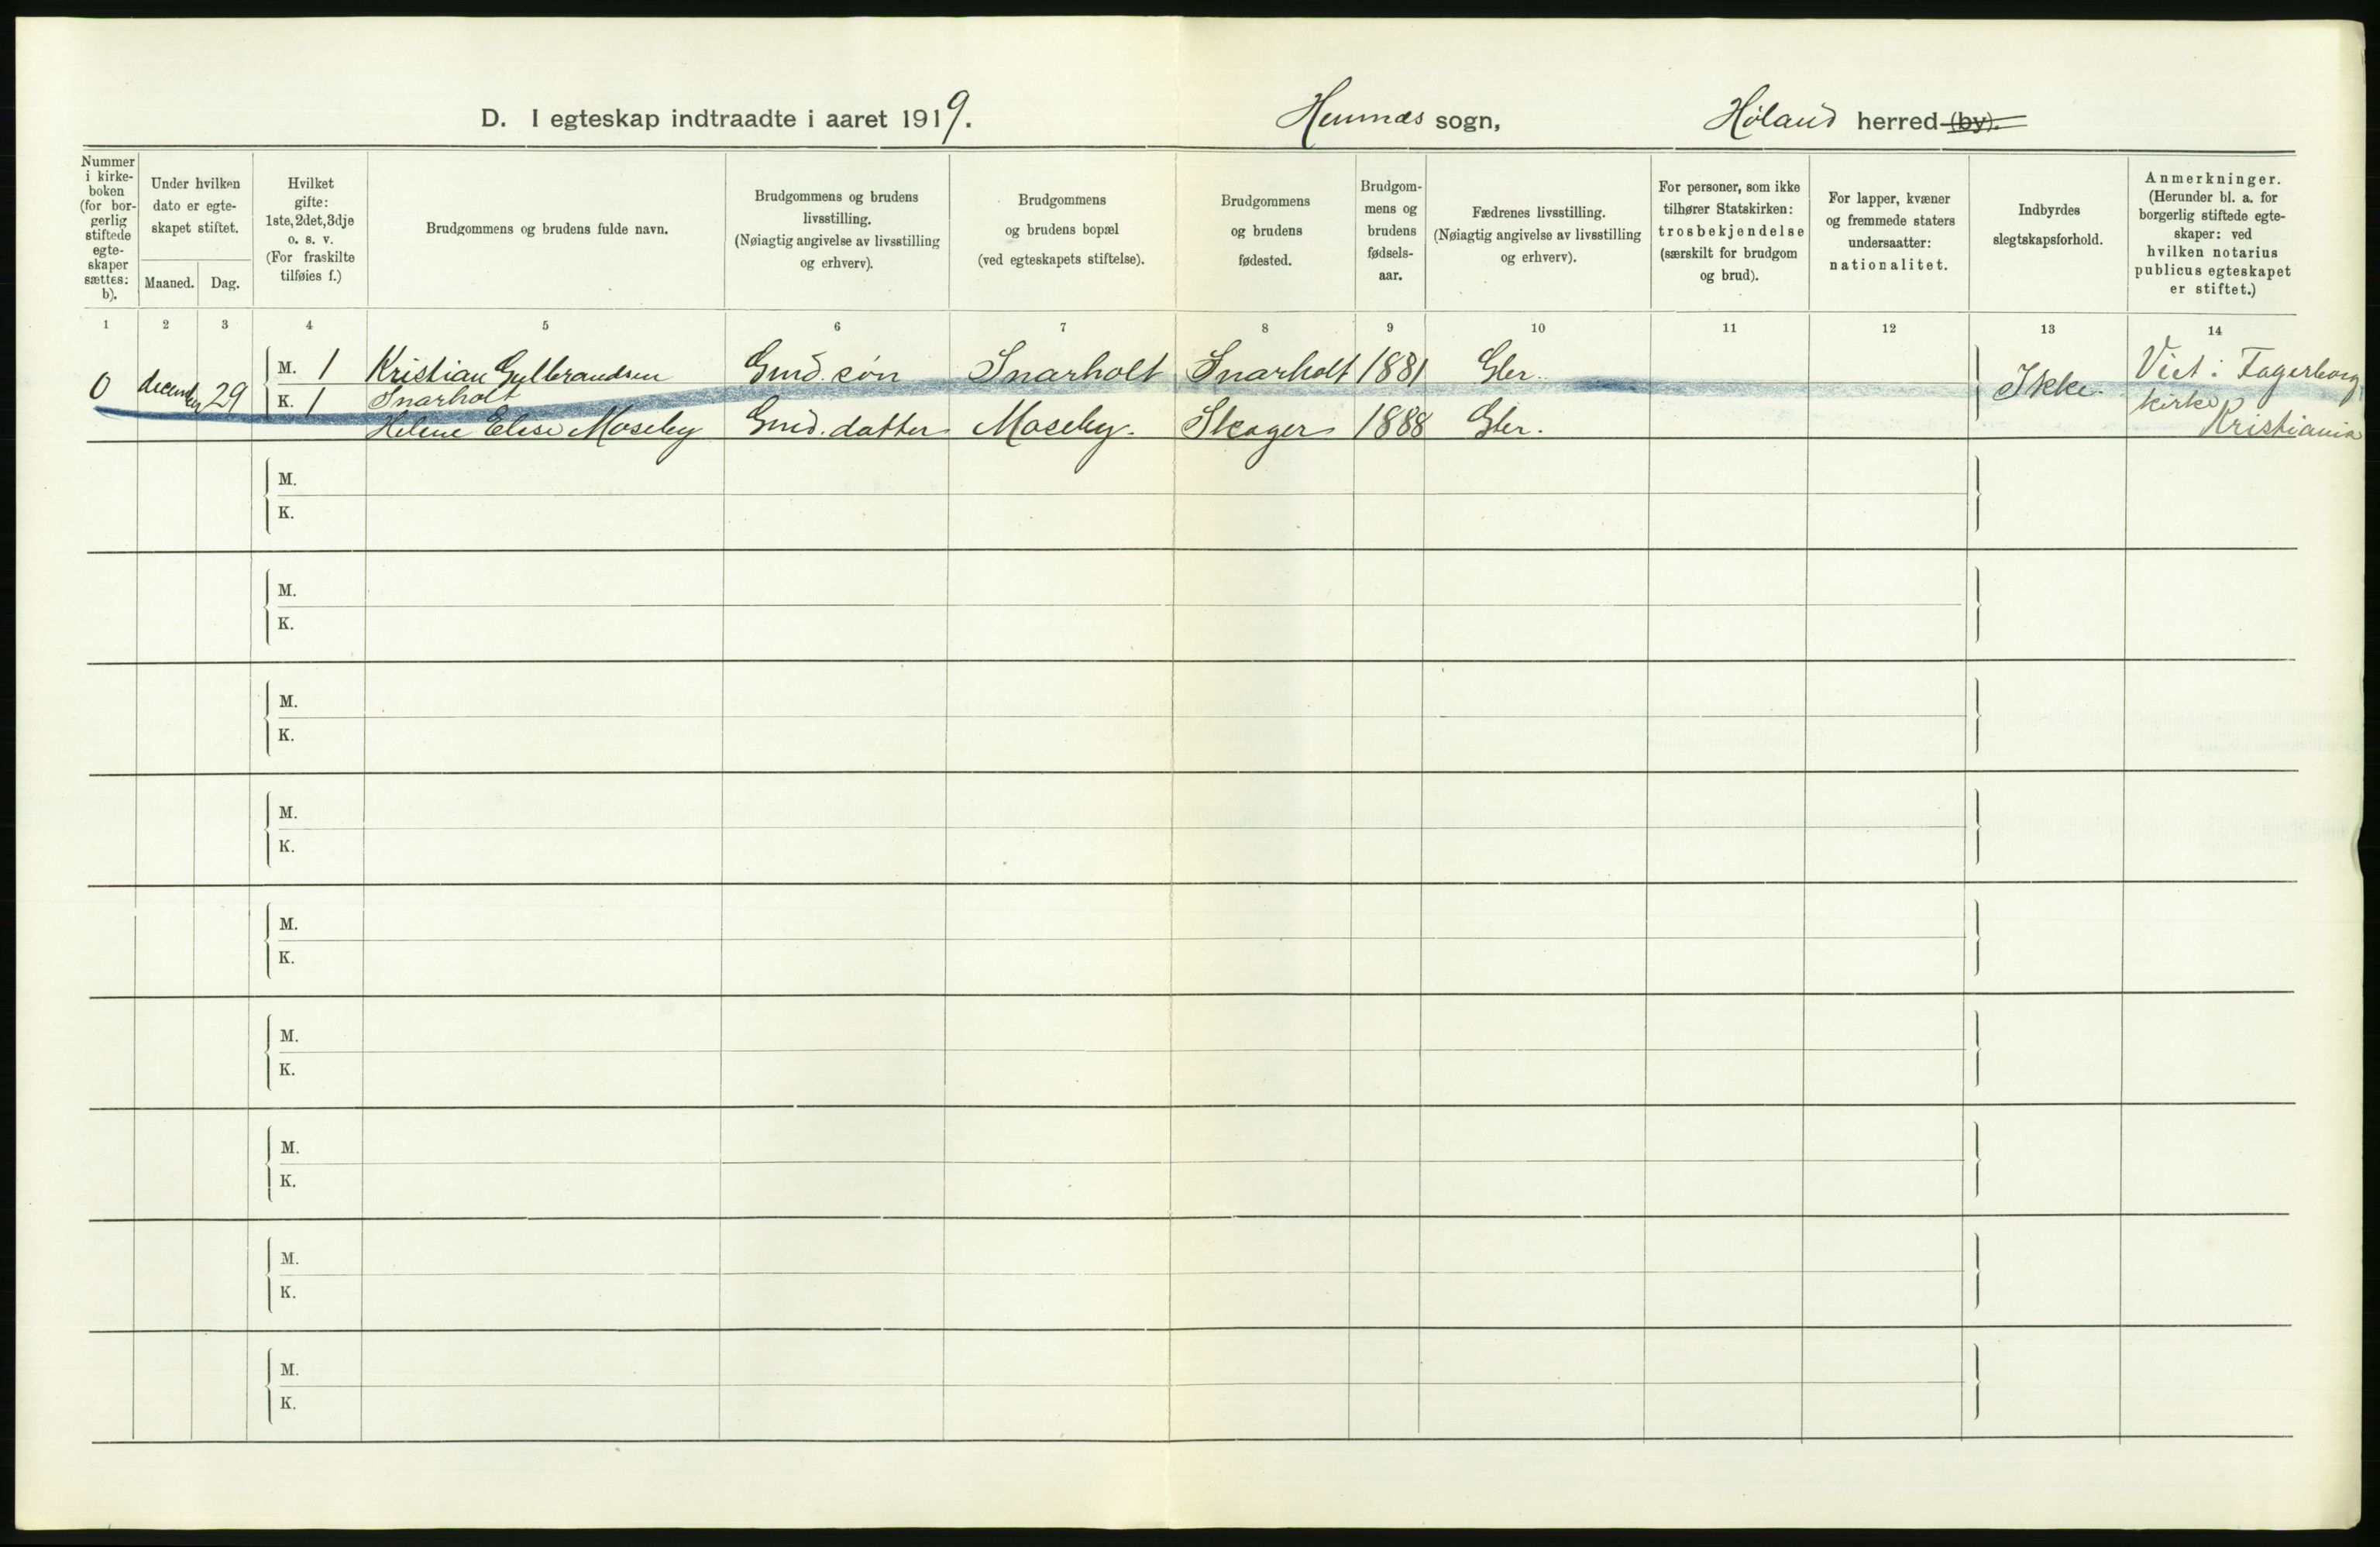 D. I egteskap indtraadte i aaret 1919. Hemnæs sogn, Høland herred (by).
Nummer
i kirke-
boken
(for bor-
gerlig
stiftede
egte-
skaper
sættes:
b).
Under hvilken
dato er egte-
skapet stiftet.
Maaned. Dag.
Hvilket
gifte:
1ste, 2det, 3dje
o. s. v.
(For fraskilte
tilføies f.)
Brudgommens og brudens fulde navn.
Brudgommens og brudens
livsstilling.
(Nøiagtig angivelse av livsstilling
og erhverv).
Brudgommens
og brudens bopæl
(ved egteskapets stiftelse).
Brudgommens
og brudens
fødested.
Brudgom-
mens og
brudens
fødsels-
aar.
Fædrenes livsstilling.
(Nøiagtig angivelse av livsstilling
og erhverv).
For personer, som ikke
tilhører Statskirken:
trosbekjendelse
(særskilt for brudgom
og brud).
For lapper, kvæner
og fremmede staters
undersaatter:
nationalitet.
Indbyrdes
slegtskapsforhold.
Anmerkninger.
(Herunder bl. a. for
borgerlig stiftede egte-
skaper: ved
hvilken notarius
publicus egteskapet
er stiftet.)
1 2 3 4 5 6 7 8 9 10 11 12 13 14
0 december 29 M. 1 Kristian Gulbrandsen Gmd. søn Snarholt Snarholt 1881 Gbr. Ikke Viet i Fagerborg
K. 1 Snarholt kirke
Helene Elise Moseby Gmd. datter Moseby. Skoger 1888 Gbr. Kristiania
M.
K.
M.
K.
M.
K.
M.
K.
M.
K.
M.
K.
M.
K.
M.
K.
M.
K.